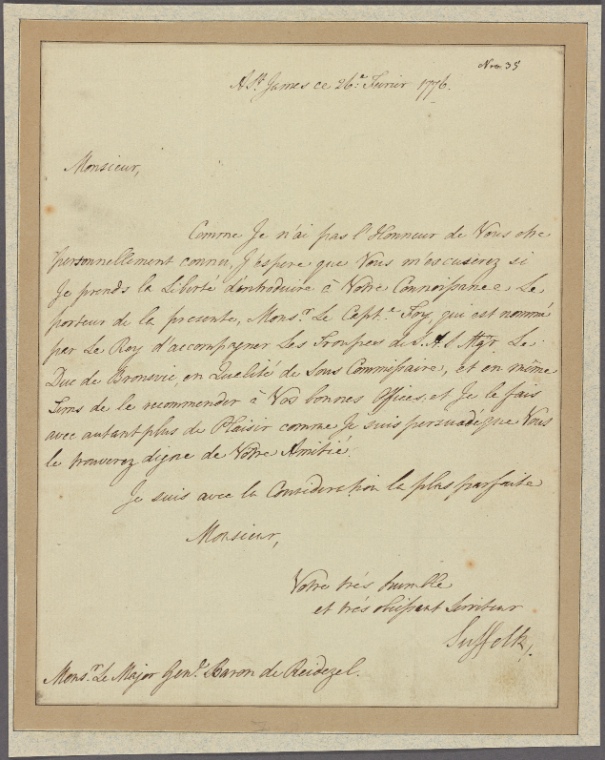 Nro 35
A St. James ce 26e Fevrier 1776.
Monsieur,
Comme Je n'ai pas l'Honneur de Vous etre
personnellement connu, J'espere que Vous m'escuserez si
Je prends la Liberté d'introduire à Votre Connoissance Le
porteur de la presente, Monsr. Le Capte. Foy, qui est nommé
par Le Roy d'accompagner Les Troupes de S. A. S. Mgr Le
Duc de Bronsvic, en Qualité de Sous Commissaire, et en même
tems de le recommender à Vos bonnes Offices, et Je le fais
avec autant plus de Plaisir comme Je suis persuadé que Vous
le trouverez digne de Votre Amitié.
Je suis avec la Consideration la plus parfaite
Monsieur,
Votre trés humble
et trés obeissant Serviteur
Suffolk.
Monsr. Le Major Genl. Baron de Reidezel.